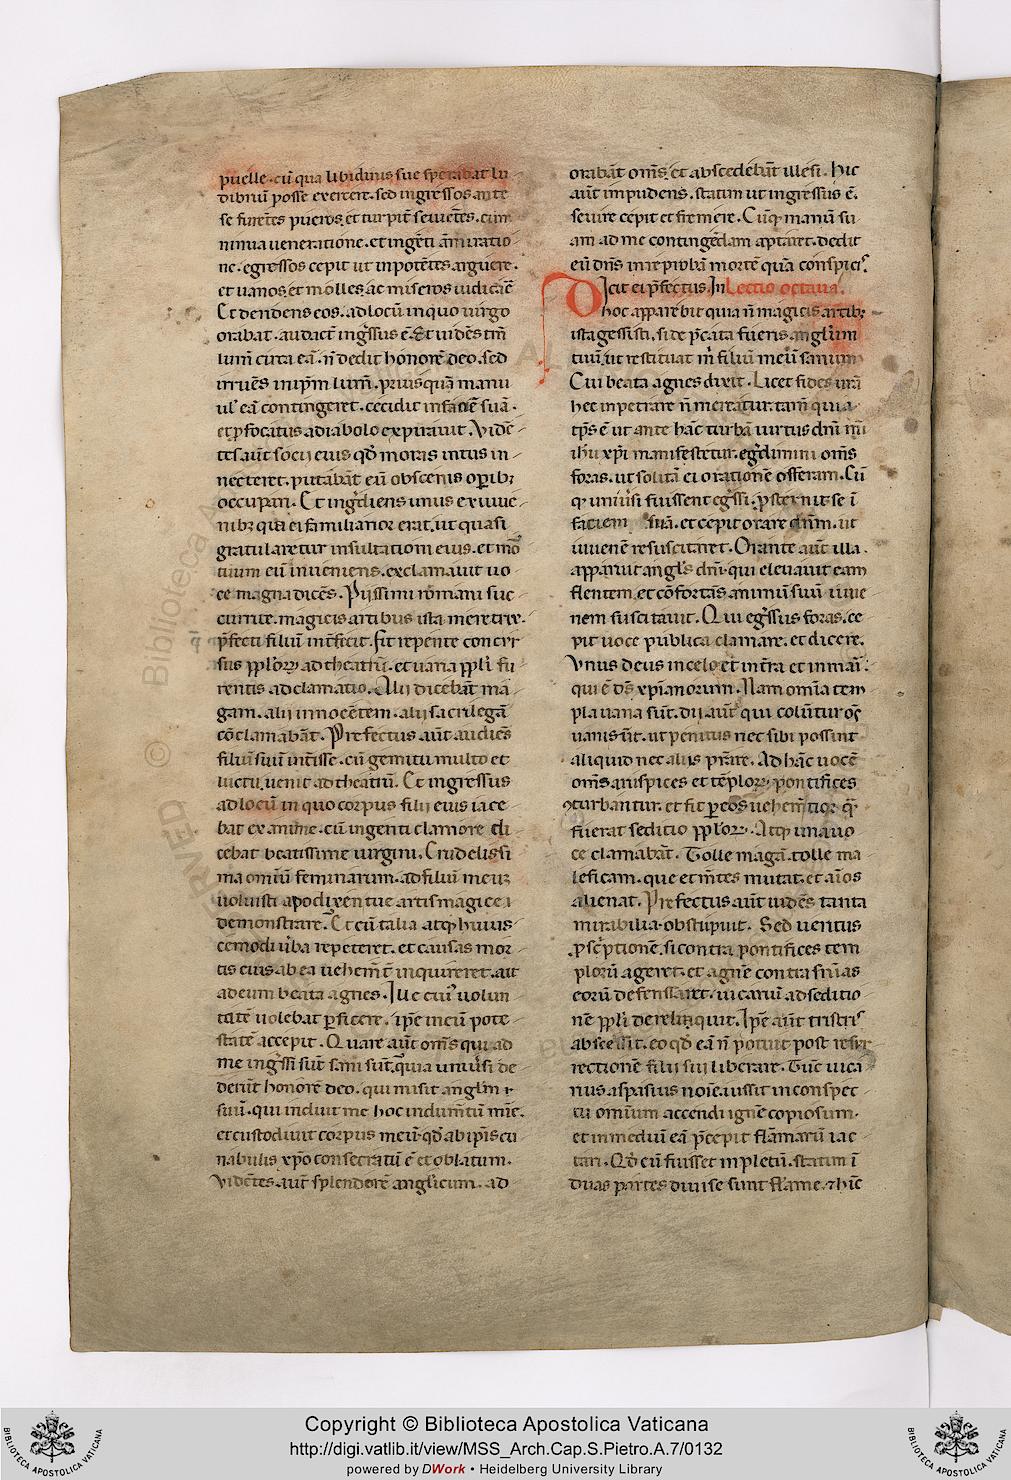 puelle. cū qua libidinis sue sperabat lu
dibriū posse exercere. sed ingressos ante
se furētes pueros. et turpit̄ seuiētes. cum
nimia ueneratione. et ingēti am̄iratio
ne. egressos cepit ut inpotētes arguere.
et uanos. et molles. ac miseros iudicare
Et deridens eos. ad locū in quo uirgo
orabat. audact̄ ingr̄ssus ē. Et uidēs tm̄
lum̄ circa eā. n̄ dedit honorē deo. sed
irruēs in ip̄m lum̄. priusquā manu
ul' eā contingeret. cecidit in faciē suā.
et p̄focatus a diabolo expirauit. Vidē
tes aūt socii eius qd̄ moras intus in
necteret. putabāt eū obscenis op̄ibꝫ
occupari. Et ingr̄diens unus ex iuue
nibꝫ qui ei familiarior erat. ut quasi
gratularetur insultationi eius. et mor
tuum eū inueniens. exclamauit uo
ce magna dicēs. Piissimi romani suc
currite. magicis artibus ista meretrix.
p̄fecti filiū int̄fecit. Fit repente concur
sus pp̄lorꝝ ad theatrū. et uaria pp̄li fu
rentis adclamatio. Alii dicebāt ma
gam. alii innocētem. alii sacrilegā
cōclamabāt. Prefectus aūt audiēs
filiū suū int̄isse. cū gemitu multo et
luctu. uenit ad theatrū. Et ingressus
ad locū in quo corpus filii eius iace
bat exanime. cū ingenti clamore di
cebat beatissime uirgini. Crudelissi
ma omniū feminarum. ad filiū meuꝫ
uoluisti apodixen tue artis magice
demonstrare. Et cū talia atqꝫ huius
cemodi uerba repeteret. et causas mor
tis eius ab ea uehem̄t inquireret. ait
ad eum beata agnes. Ille cuius uolun
tatē uolebat p̄ficere. ip̄e in eū pote
statē accepit. Quare aūt om̄s qui ad
me ingr̄ssi sūt sani sūt. quia uniuersi de
derūt honorē deo. qui misit angl̄m
suū. qui induit me hoc indum̄tū m̄ie.
et custodiuit corpus meū. qd̄ ab ip̄is cu
nabulis xp̄o consecratū ē et oblatum.
Videtes aūt splendorē anglicum. ad
orabāt om̄s. et abscedebāt illesi. hic
aūt impudens. statim ut ingressus ē.
seuire cepit et fremere. Cūqꝫ manū su
am ad me contingēdam aptaret. dedit
eū dn̄s in reprobā mortē quā conspicis.
Dicit ei p̄fectus. In Lectio octaua.
hoc apparebit quia n̄ magicis artibꝫ
ista gessisti. si dep̄cata fueris angl̄um
tuū. ut restituat m̄ filiū meū sanum
Cui beata agnes dixit. Licet fides ur̄a
hec inpetrare n̄ mereatur. tam̄ quia
tp̄s ē ut ante hāc turbā uirtus dn̄i m̄i
ih̄u xp̄i manifestetur. egr̄dimini om̄s
foras. ut solitā ei orationē offeram. Cū
qꝫ uniūsi fuissent egr̄ssi. p̄sternit se ī
faciem suā. et cepit orare dn̄m. ut
iuuenē resuscitaret. Orante aūt illa.
apparuit angl̄s dn̄i. qui eleuauit eam
flentem. et cōfortās animū suū iuue
nem suscitauit. Qui egr̄ssus foras. ce
pit uoce publica clamare. et dicere.
Vnus deus in celo et in t̄ra et in mari.
qui ē ds̄ xp̄ianorum. Nam omīa tem
pla uana sūt. dii aūt qui colūtur om̄s
uani sūt. ut penitus nec sibi possint
aliquid nec aliis pr̄are. Ad hāc uocē
om̄s aruspices et tēplorꝝ pontifices
ꝯturbantur. et fit p̄ eos uehem̄tior q̄
fuerat seditio pp̄lorꝝ. Atqꝫ una uo
ce clamabāt. Tolle magā. tolle ma
leficam. que et m̄tes mutat. et aīos
alienat. Prefectus aūt uidēs tanta
mirabilia. obstipuit. Sed ueritus
p̄scriptionē. si contra pontifices tem
plorū ageret. et agnē contra sn̄ias
eorū defensaret. uicariū ad seditio
nē pp̄li dereliquit. Ip̄e aūt tristis
abscessit. eo qd̄ eā n̄ potuit post resur
rectionē filii sui liberare. Tūc uica
rius aspasius noīe. iussit in conspec
tu omium accendi ignē copiosum.
et in mediū eā p̄cepit flāmarū iac
tari. Qd̄ cū fuisset inpletū. statim ī
duas partes diuise sunt flame. et hīc
Copyright © Biblioteca Apostolica Vaticana
http://digi.vatlib.it/view/MSS_Arch.Cap.S.Pietro.A.7/0132
powered by DWork • Heidelberg University Library